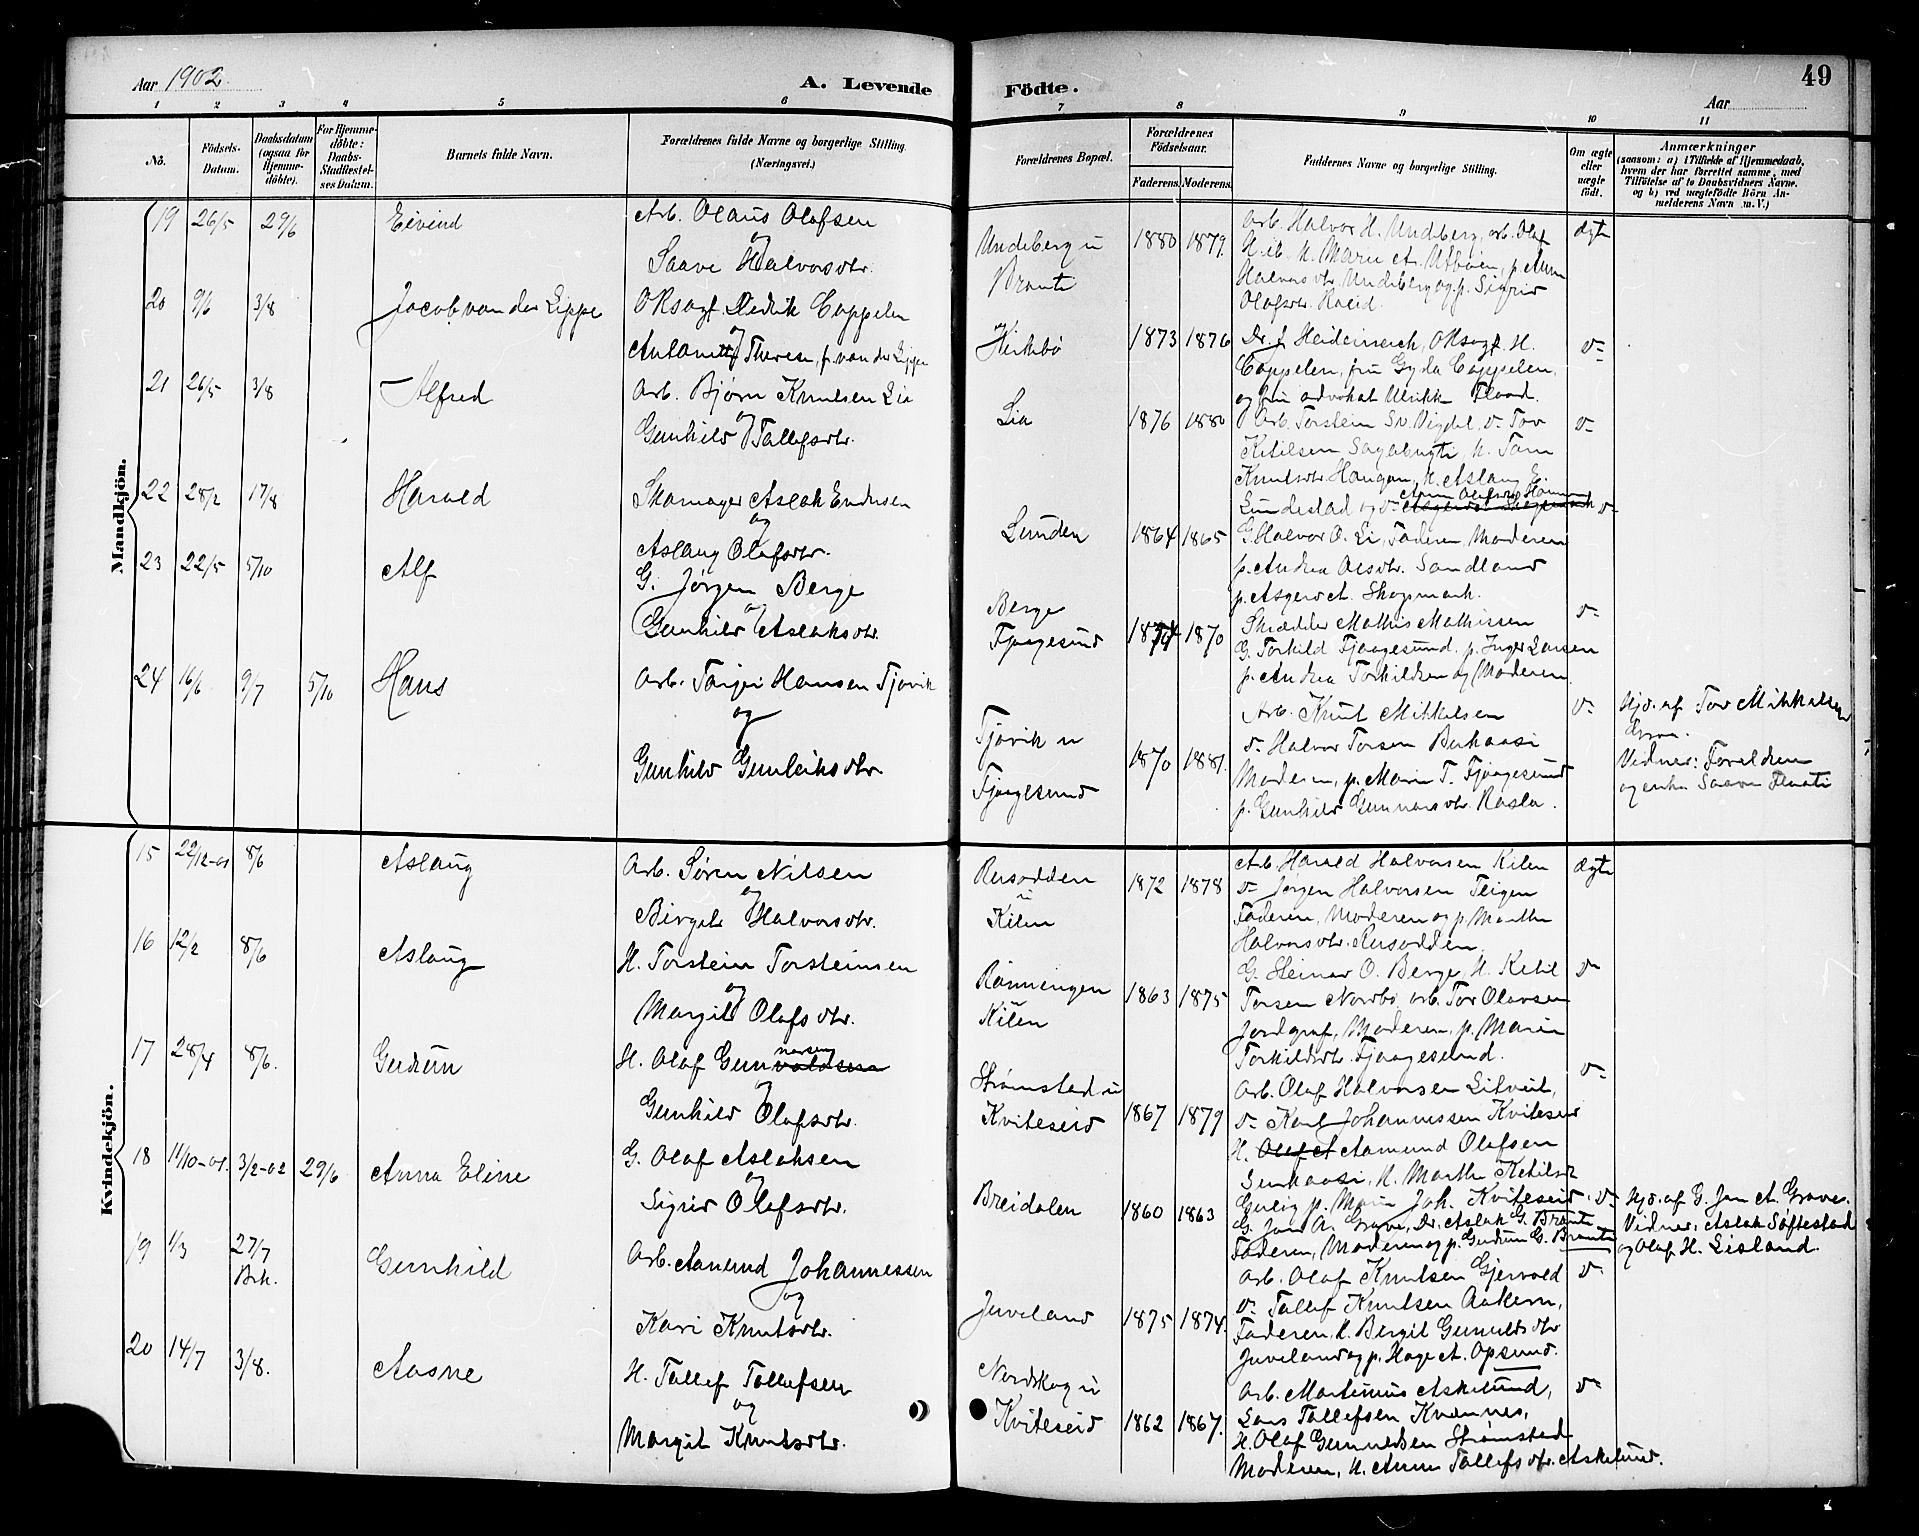 Aar 1902.
A. Levende
Födte.
49
Aar
1 2 3 4 5 6 7 8 9 10 11
No.
Födsels-Datum.
Daabsdatum (ogsaa for Hjemme-döbte).
For Hjemme-döbte: Daabs-Stadfæstel-ses Datum.
Barnets fulde Navn.
Forældrenes fulde Navne og borgerlige Stilling. (Næringsvei.)
Forældrenes Bopæl.
Forældrenes Födselsaar.
Faderens. Moderens.
Faddernes Navne og borgerlige Stilling.
Om ægte eller uægte födt.
Anmærkninger
(saasom: a) i Tilfælde af Hjemmedaab, hvem der har forrettet samme, med Tilföielse af to Daabsvidners Navne, og b) ved uægtefödte Börn An-melderens Navn m. V.)
Mandkjön.
19 26/5 29/6 Eivind
Arb. Olaus Olafsen
og
Saave Halvorsdtr.
Undeberg u
Brante
1880 1879.
Arb. Halvor H. Undeberg, arb. Olaf
H. ib. H. Mari A. Utbøen, p. Anne
Halvorsdtr. Undeberg og p. Sigrid
Olafsdtr. Haeid.
ægte
20 9/6 3/8 Jacob van der Lippe
OKsagf. Didrik Cappelen
og
Antonette Therese, f. van der Lippe
Kirkebø
1873 1876
Dr. J. Heidenreich, OKsagf. H.
Cappelen, fru Gyda Cappelen,
og fru advokat Ulrikke Flood.
d-
21 26/5 3/8 Alfred
Arb. Bjørn Knutsen Lia
og
Gunhild Tallefsdtr.
Lia
1876 1880
Arb. Torstein Sv. Vigdal, d- Tov
Ketilsen Sagabugti, H. Tone
Knutsdtr. Haugan, H. Aslaug E.
Lundestad og d-
d-
22 28/2 17/8 Harald
Skomager Aslak Endresen
og
Aslaug Olafsdtr.
Lunden
1864 1865
G. Halvor O. Li, Faderen, Moderen
p. Andrea Olsdtr. Sandland
p. Asgerd A. Skogmark.
d-
23 22/5 5/10 Alf
G. Jørgen Berge
og
Gunhild Aslaksdtr.
Berge
Fjaagesund
1874 1870
Skrædder Mathis Mathissen
G. Torkild Fjaagesund. p. Inger Larsen
p. Andrea Torkildsen og Moderen
d-
24 16/6 9/7 5/10 Hans
Arb. Torgei Hansen Tjovik
og
Gunhild Gunleiksdtr.
Tjovik u
Fjaagesund
1870 1881.
Arb. Knut Mikkelsen
d- Halvor Torsen Berhaasi
Moderen, p. Marie T. Fjaagesund
p. Gunhild Gunnarsdtr. Rasla.
d-
Hjd. af Tov Mikkelsen
Vidner: Forældrene
og enke Saave Flaati
Kvindekjön.
15 22/12-01 8/6 Aslaug
Arb. Søren Nilsen
og
Birgit Halvorsdtr.
Rusodden
i
Kilen
1872 1878
Arb. Harald Halvorsen Kilen
d- Jørgen Halvorsen Teigen
Faderen, Moderen og p. Marthe
Halvorsdtr. Rusodden.
ægte
16 12/2 8/6 Aslaug
H. Torstein Torsteinsen
og
Margit Olafsdtr.
Rønningen
Kilen
1863 1875
G. Steinar O. Berge, H. Ketil
Torsen Nordbø, arb. Tor Olavsen
Jordgraf, Moderen, p. Marie
Torkildsdtr. Fjaagesund.
d-
17 28/4 8/6. Gudrun
H. Olaf Gunvaldsen
narsen
og
Gunhild Olafsdtr.
Strømstad u
Kviteseid
1867 1879
Arb. Olaf Halvorsen Litveit,
d- Karl Johannessen Kviteseid
H. Olaf A Aamund Olafsen
Gunhaasi, H. Marthe Ketilsdr
Guleig p. Marie Joh. Kviteseid.
d-
18 11/10-01. 3/2-02 29/6 Anna Eline
G. Olaf Aslaksen
og
Sigrid Olafsdtr.
Breidalen
1860 1863
G. Jon A. Grave, Dr. Aslak G. Brante
Faderen, Moderen og p. Gudrun G. Brante
d-
Hjd. af G. Jon A. Grave.
Vidner, Aslak Søftestad
og Olaf H. Lisland.
19 1/3 27/7 Brk. Gunhild
Arb. Aanund Johannessen
og
Kari Knutsdtr.
Juveland
1875 1874.
Arb. Olaf Knutsen Gjervold
d- Tallef Knutsen Aakern,
Faderen, H. Bergit Gunulfsdtr
Juveland og p. Hage A. Opsund.
d-
20 14/7 3/8. Aasne
H. Tallef Tallefsen
og
Margit Knutsdtr.
Nordskog u
Kviteseid
1862 1867.
Arb. Martinius Askelund,
Lars Tallefsen Kvennes,
H. Olaf Gunuldsen Strømstad
Moderen, H. Anne Tallefsdtr. Askelund.
d-